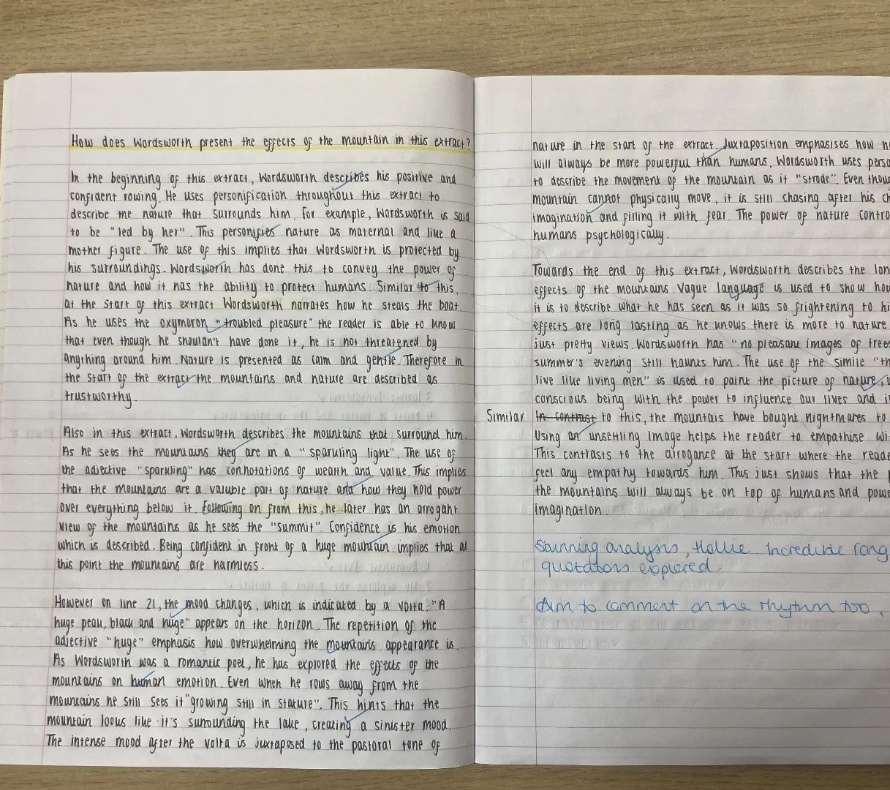 How does Wordsworth present the effects of the mountain in this extract?
In the beginning of this extract, Wordsworth describes his positive and
confident rowing. He uses personification throughout this extract to
describe the nature that surrounds him, for example, Wordsworth is said
to be "led by her". This personifies nature as maternal and like a
mother figure. The use of this implies that Wordsworth is protected by
his surroundings. Wordsworth has done this to convey the power of
nature and how it has the ability to protect humans. Similar to this,
at the start of this extract Wordsworth narrates how he steals the boat.
As he uses the oxymoron "troubled pleasure" the reader is able to know
that even though he shouldn't have done it, he is not threatened by
anything around him. Nature is presented as calm and gentle. Therefore in
the start of the extract the mountains and nature are described as
trustworthy.
Also in this extract, Wordsworth describes the mountains that surround him.
As he sees the mountains they are in a "sparkling light". The use of
the adjective "sparkling" has connotations of wealth and value. This implies
that the mountains are a valuble part of nature and how they hold power
over everything below it. Following on from this, he later has an arrogant
view of the mountains as he sees the "summit". Confidence is his emotion
which is described. Being confident in front of a huge mountain implies that at
this point the mountains are harmless.
However on line 21, the mood changes, which is indicated by a volta. "A
huge peak, black and huge" appears on the horizon. The repetition of the
adjective "huge" emphasis how overwhelming the mountains appearance is.
As Wordsworth was a romantic poet, he has explored the effects of the
mountains on human emotion. Even when he rows away from the
mountains he still sees it "growing still in stature". This hints that the
mountain looks like it's surrounding the lake, creating a sinister mood.
The intense mood after the volta is juxtaposed to the pastoral tone of
nature in the start of the extract. Juxtaposition emphasises how n
will always be more powerful than humans, Wordsworth uses perso
to describe the movement of the mountain as it "strode". Even thou
mountain cannot physically move, it is still chasing after his ch
imagination and filling it with fear. The power of nature contro
humans psychologically.
Towards the end of this extract, Wordsworth describes the lon
effects of the mountains. Vague language is used to show how
it is to describe what he has seen as it was so frightening to hi
effects are long lasting as he knows there is more to nature
just pretty views. Wordsworth has "no pleasant images of trees
summer's evening still haunts him. The use of the simile "th
live like living men" is used to paint the picture of nature
conscious being with the power to influence our lives and i
Similar In contrast to this, the mountais have bought nightmares to
Using an unsettling image helps the reader to empathise wi
This contrasts to the arrogance at the start where the reade
feel any empathy towards him. This just shows that the
the mountains will always be on top of humans and powe
imagination.
Stunning analysis, Hollie. Incredible rang
quotations explored.
Aim to comment on the rhythm too.